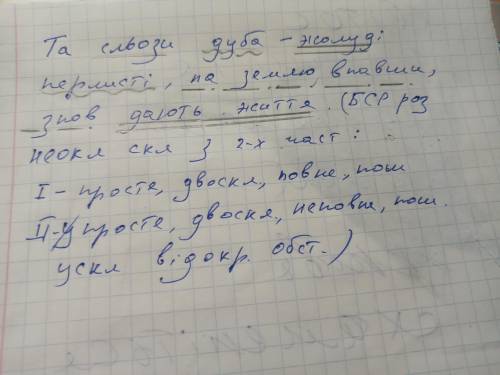 Та сльози дуба - жолуді
перлисті, на землю, впавши,
знов дають життя. (БСР роз
неокл скл з 2-х част:
I - просте, двоскл, повне, пош
II - у просте, двоскл, неповне, пош.
ускл відокр. обст.)